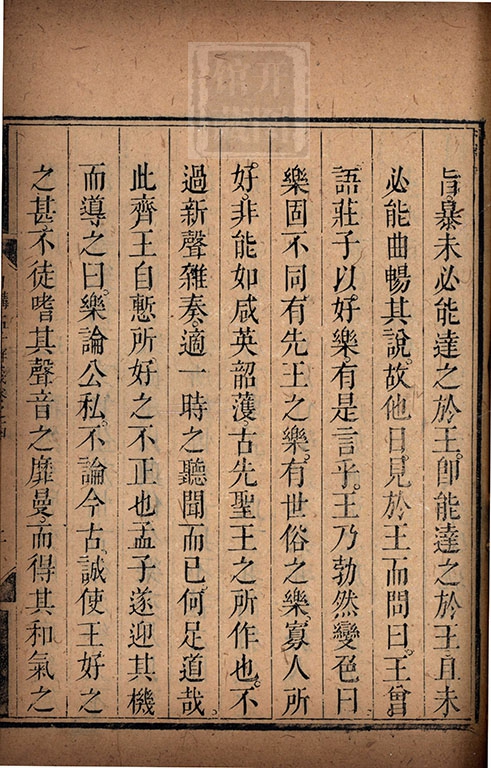 旨暴未必能達之於王。即能達之於王且未
必能曲暢其說。故他日。見於王而問曰。王嘗
語莊子以。好樂。有是言乎。王乃勃然變色曰
樂固不同有先王之樂。有世俗之樂。寡人所
好。非能如咸英韶濩。古先聖王之所作也。不
過新聲雜奏。適一時之聽聞而已。何足道哉
此齊王自慙所好之不正也孟子遂迎其機
而導之曰。樂論公私。不論今古。誠使王好之
之甚。不徒嗜其聲音之靡曼。而得其和氣之